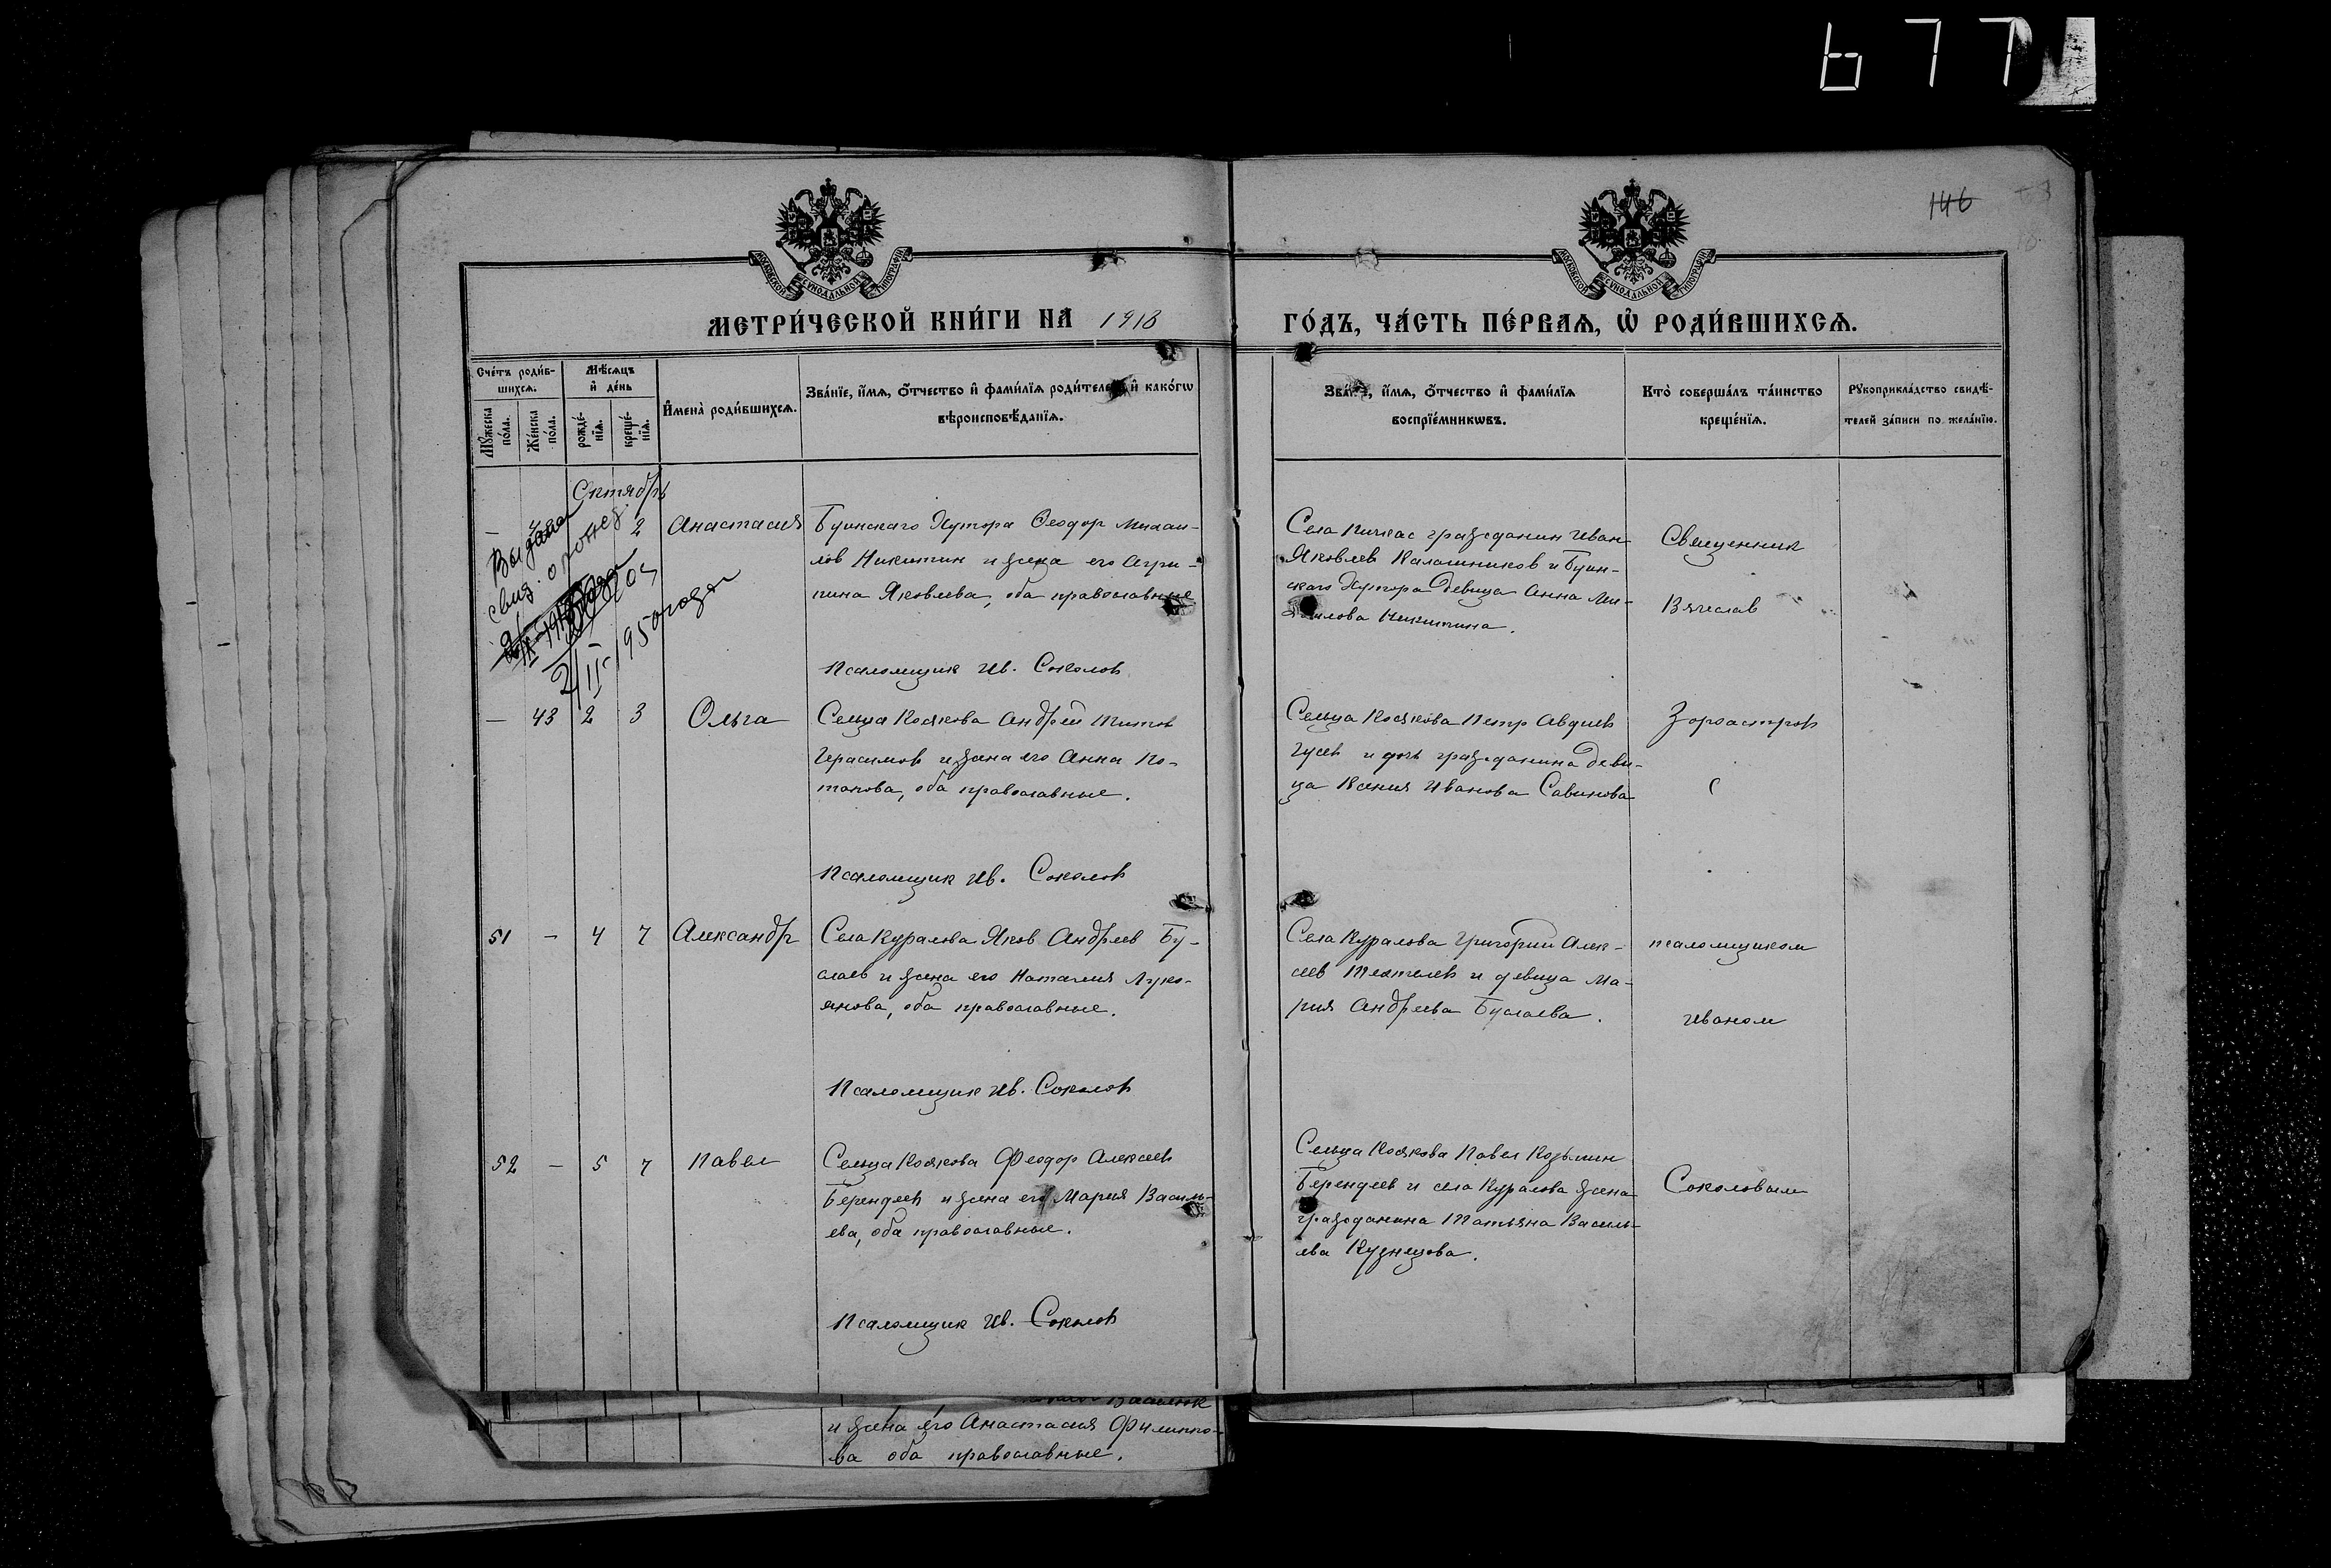 677
146
МОСКОВСКОЙ СѴНОДАЛЬНОЙ ТИПОГРАФІИ
МОСКОВСКОЙ СѴНОДАЛЬНОЙ ТИПОГРАФІИ
МЕТРИ́ЧЕСКОЙ КНИ́ГИ НА 1918 ГО́ДЪ, ЧА́СТЬ ПЕ́РВАѦ, Ѡ РОДИ́ВШИХСѦ.
Сче́тъ роди́в-
шихсѧ.
Мꙋ́жеска по́ла.
Же́нска по́ла.
Мѣ́сѧцъ
и҆ де́нь
рожде́-
нїѧ.
креще́-
нїѧ.
И҆мена̀ роди́вшихсѧ.
Зва́нїе, и҆́мѧ, ѻ҆́тчество и҆ фами́лїѧ роди́телей и҆ како́гѡ
вѣроисповѣ́данїѧ.
Зва́нїе, и҆́мѧ, ѻ҆́тчество и҆ фами́лїѧ
воспрїе́мникѡвъ.
Кто̀ соверша́лъ та́инство
креще́нїѧ.
Рꙋкоприкла́дство свидѣ́-
телей за́писи по жела́нїю.
Октябрь
Выдана
свид. о рожд.
2/II-1950 года
— 2 Анастасия
Буинскаго Хутора Феодор Михаи-
лов Никитин и жена его Агри-
пина Яковлева, оба православные
Псаломщик Ив. Соколов
Села Кичкас гражданин Иван
Яковлев Калашников и Буин-
скаго Хутора девица Анна Ми-
хаилова Никитина.
Священник
Вячеслав
— 43 2 3 Ольга
Сельца Коċякова Андрей Титов
Герасимов и жена его Анна По-
тапова, оба православные.
Псаломщик Ив. Соколов
Сельца Косякова Петр Авдиев
Гусев и дочь гражданина деви-
ца Ксения Иванова Савинова
Зороастров
с
51 — 4 7 Александр
Села Куралова Яков Андреев Бу-
слаев и жена его Наталия Луко-
янова, оба православные.
Псаломщик Ив. Соколов
Села Куралова Григорий Алек-
сеев и девица Ма-
рия Андреева Буслаева.
псаломщиком
Иваном
52 — 5 7 Павел
Сельца Косякова Феодор Алексеев
Берендеев и жена его Мария Василь-
ева, оба православные.
Псаломщик Ив. Соколов
Сельца Косякова Павел Козьмин
Берендеев и села Куралова жена
гражданина Татьяна Василь-
ева Кузнецова.
Соколовым
и жена его Анастасия Филиппо-
ва оба православные.